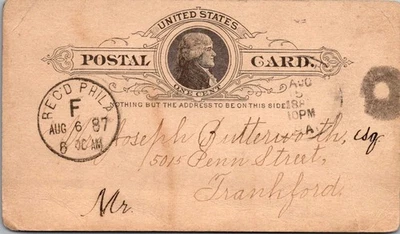 UNITED STATES
POSTAL CARD.
ONE CENT
NOTHING BUT THE ADDRESS TO BE ON THIS SIDE.
REC'D PHILA
F
AUG 6 87
6 00 AM
AUG
5
188
10PM
A
Joseph Butterworth, esq
5015 Penn Street,
Frankford.
Mr.